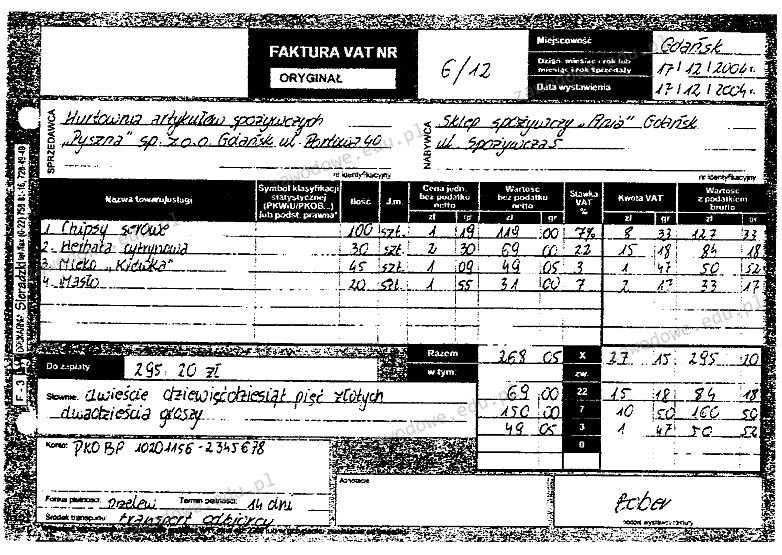 FAKTURA VAT NR
ORYGINAŁ
6/12
Miejscowość Gdańsk
Dzień, miesiąc i rok lub miesiąc i rok sprzedaży 17 | 12 | 2004 r.
Data wystawienia 17 | 12 | 2004 r.
SPRZEDAWCA
Hurtownia artykułów spożywczych
"Pyszna" sp. z.o.o. Gdańsk ul. Portowa 40
nr identyfikacyjny
NABYWCA
Sklep spożywczy "Ania" Gdańsk
ul. Spożywcza 5
nr identyfikacyjny
Nazwa towaru/usługi Symbol klasyfikacji statystycznej (PKWiU/PKOB...) lub podst. prawna* Ilość J.m. Cena jedn. bez podatku netto zł gr Wartość bez podatku netto zł gr Stawka VAT % Kwota VAT zł gr Wartość z podatkiem brutto zł gr
1. Chipsy serowe 100 szt. 1 19 119 00 7% 8 33 127 33
2. Herbata cytrynowa 30 szt. 2 30 69 00 22 15 18 84 18
3. Mleko "Krówka" 45 szt. 1 09 49 05 3 1 47 50 52
4. Masło 20 szt. 1 55 31 00 7 2 17 33 17
Do zapłaty 295. 20 zł
Razem 268 05 X 27 15 295 20
w tym: zw.
69 00 22 15 18 84 18
150 00 7 10 50 160 50
49 05 3 1 47 50 52
0
Słownie: dwieście dziewięćdziesiąt pięć złotych
dwadzieścia groszy
Konto: PKO BP 10201156-2345678
Forma płatności: przelew Termin płatności: 14 dni
Środek transportu: transport odbiorcy
Adnotacje
podpis wystawcy faktury
zawodowe.edu.pl